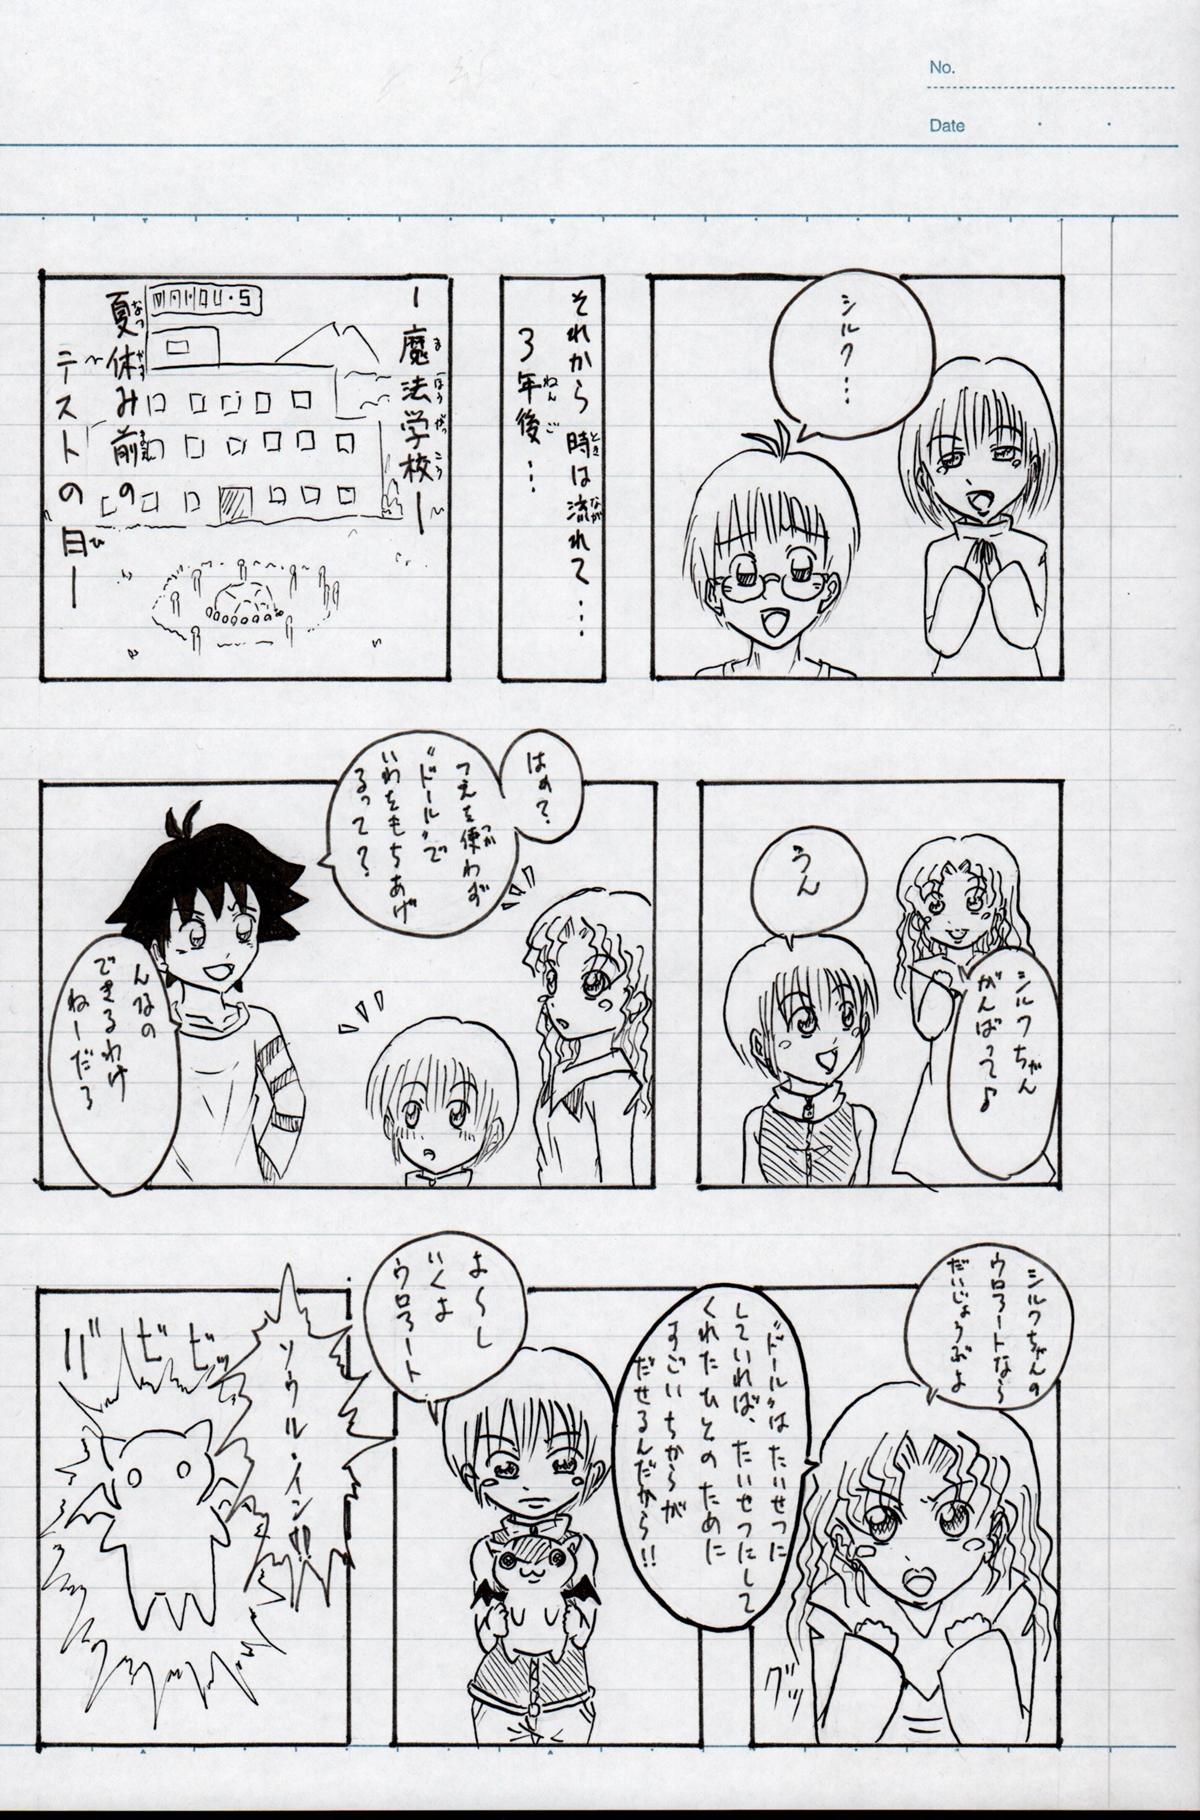 No.
Date
シルク…
それから時は流れて…
とき
ながれ
3年後…
ねんご
ー魔法学校ー
まほうがっこう
MAHOU・S
夏休み前の
なつやす
まえ
テストの日ー
ひ
シルクちゃん
がんばって♪
うん
はぁ?
つえを使わず
つか
"ドール"で
いわをもちあげ
るって?
んなの
できるわけ
ねーだろ
シルクちゃんの
ウロアートなら
だいじょうぶよ
"ドール"はたいせつに
していれば、たいせつにして
くれたひとのために
すごいちからが
だせるんだから!!
グッ
よ～し
いくよ
ウロアート
ソウル・イン!!
ビビッ
バ